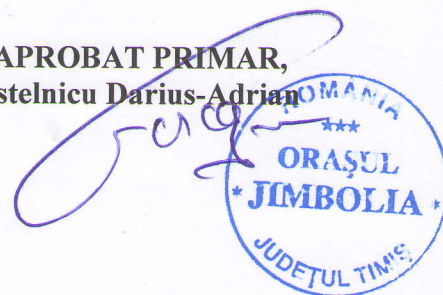 APROBAT PRIMAR,
stelnicu Darius-Adrian
ROMANIA
***
ORAŞUL
* JIMBOLIA *
JUDEŢUL TIMIŞ